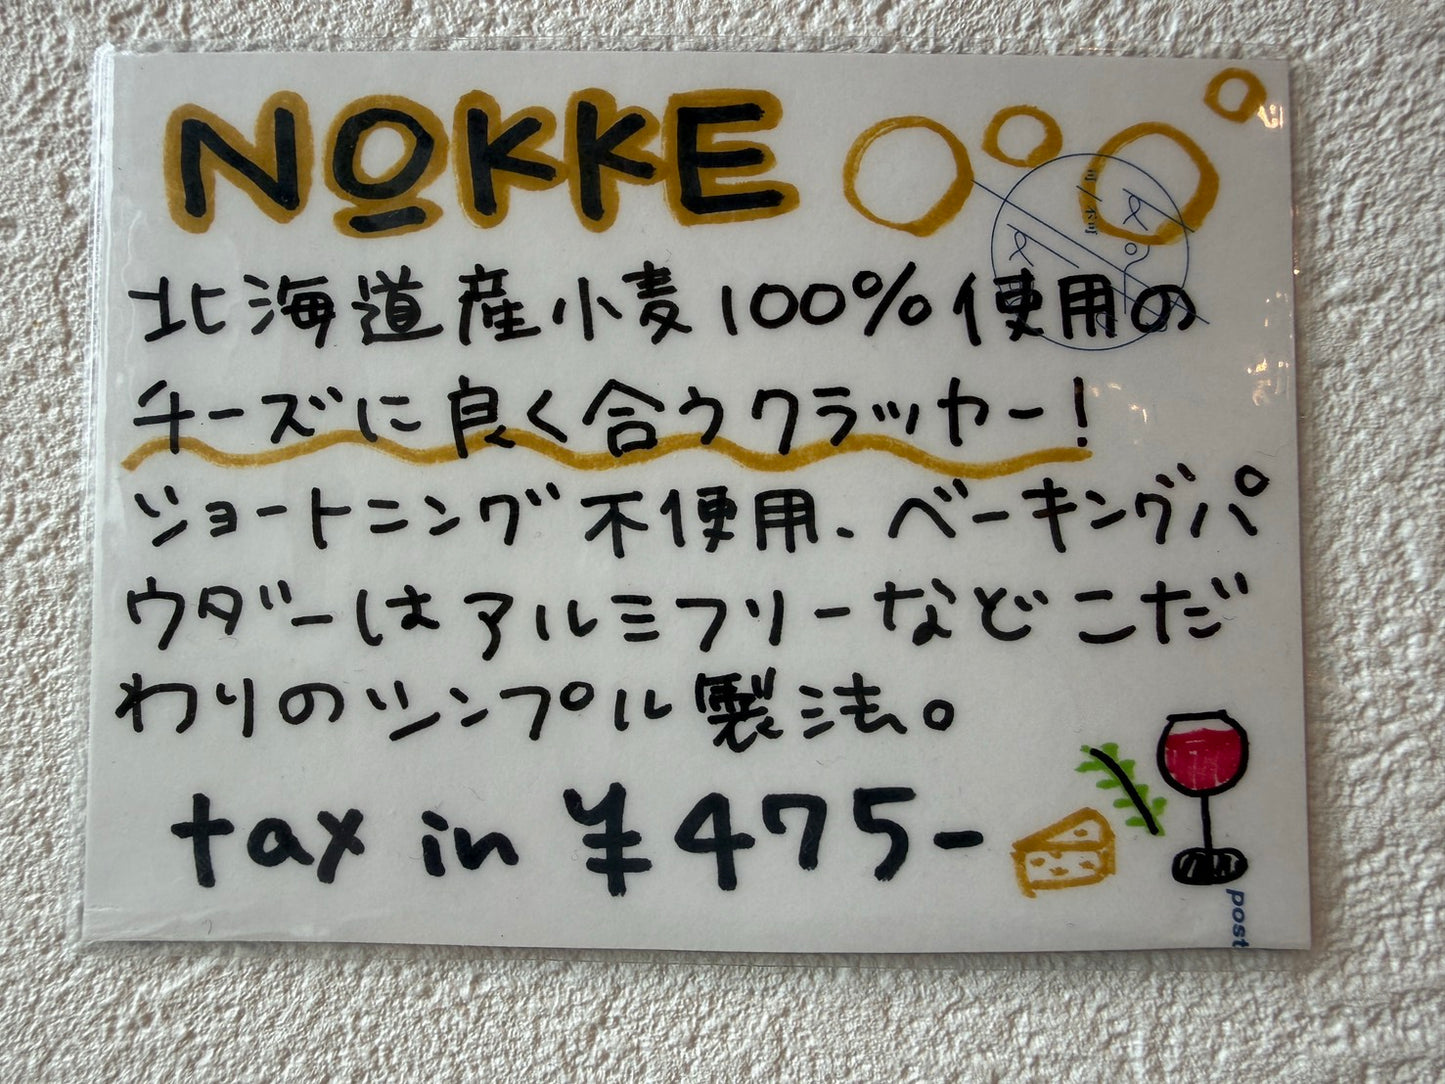 NOKKE
北海道産小麦100%使用の
チーズに良く合うクラッカー！
ショートニング不使用、ベーキングパ
ウダーはアルミフリーなどこだ
わりのシンプル製法。
tax in ¥475-
post